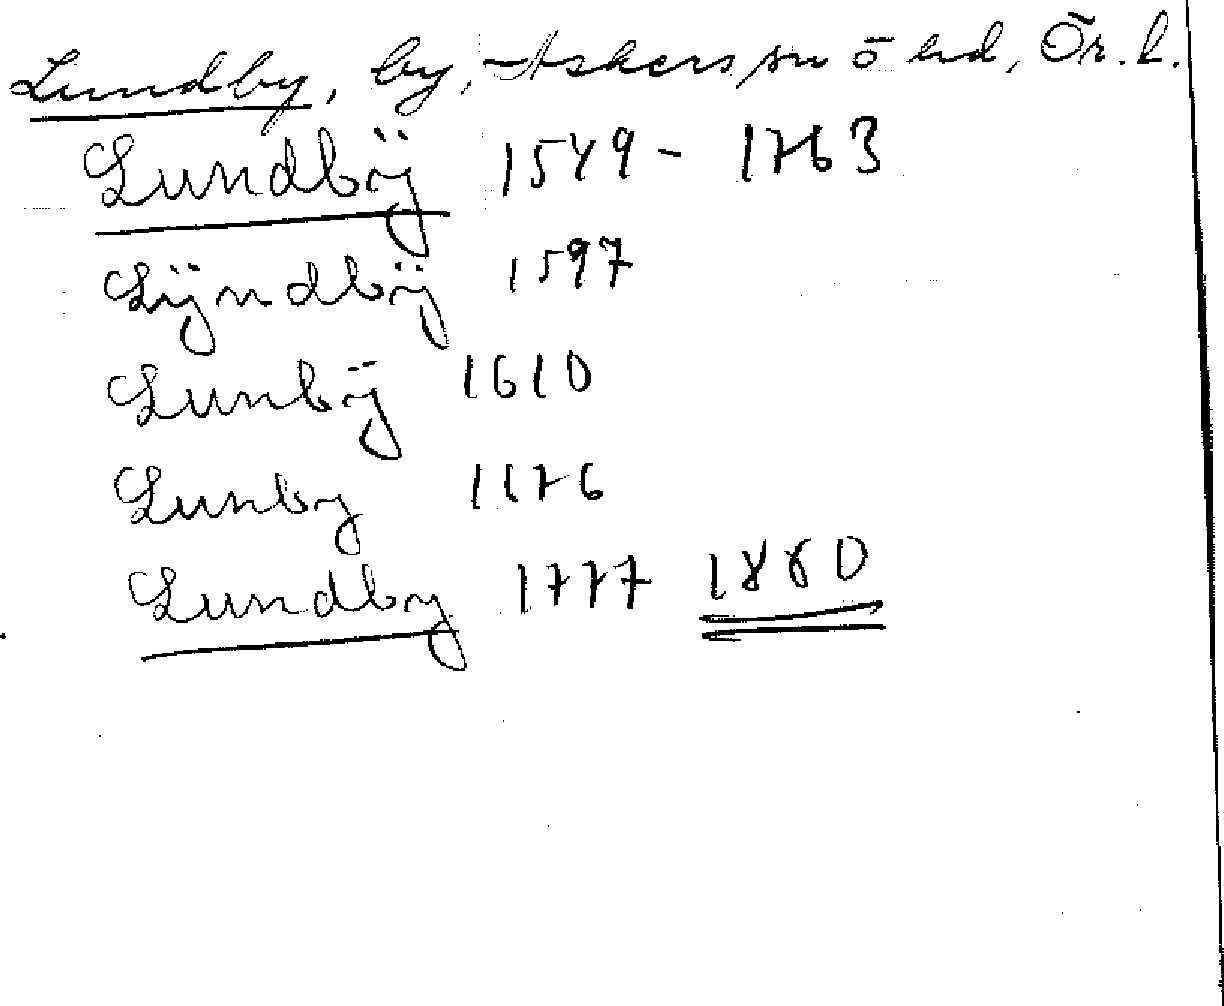 Lundby, by, Askers sn o hd, Ör. l.
Lundbÿ 1549 - 1763
Lÿndbÿ 1597
Lunbÿ 1610
Lunby 1676
Lundby 1777 1880